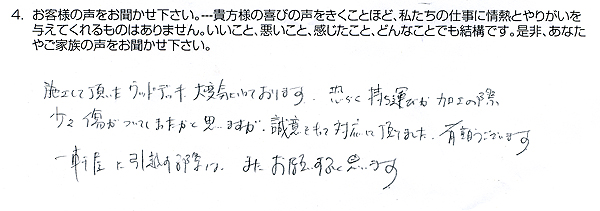 4. お客様の声をお聞かせ下さい。---貴方様の喜びの声をきくことほど、私たちの仕事に情熱とやりがいを
与えてくれるものはありません。いいこと、悪いこと、感じたこと、どんなことでも結構です。是非、あなた
やご家族の声をお聞かせ下さい。
施工して頂いたウッドデッキ、大変気に入っております。恐らく持ち運びか加工の際
少々傷がついてしまったかと思いますが、誠意をもって対応して頂きました。有難うございます
一軒屋に引越す際は、またお願いすると思います